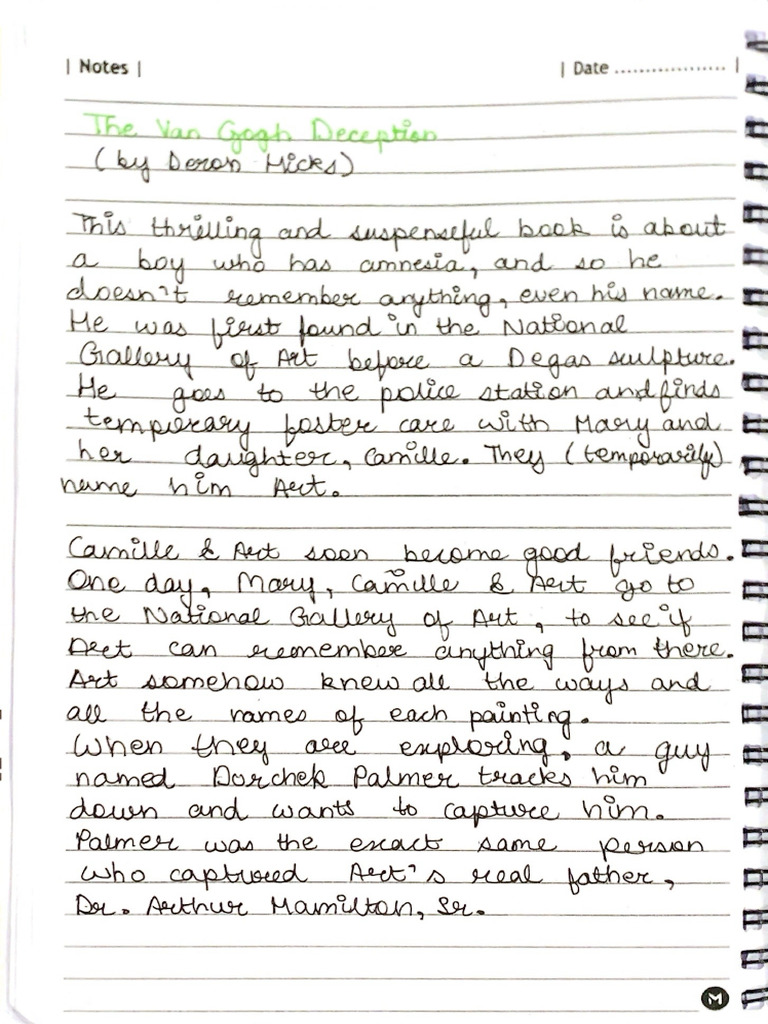 | Notes |
| Date .................. |
The Van Gogh Deception
(by Deron Hicks)
This thrilling and suspenseful book is about
a boy who has amnesia, and so he
doesn't remember anything, even his name.
He was first found in the National
Gallery of Art before a Degas sculpture.
He goes to the police station and finds
temporary foster care with Mary and
her daughter, Camille. They (temporarily)
name him Art.
Camille & Art soon become good friends.
One day, Mary, Camille & Art go to
the National Gallery of Art, to see if
Art can remember anything from there.
Art somehow knew all the ways and
all the names of each painting.
When they are exploring, a guy
named Dorchek Palmer tracks him
down and wants to capture him.
Palmer was the exact same person
who captured Art's real father,
Dr. Arthur Hamilton, Sr.
M